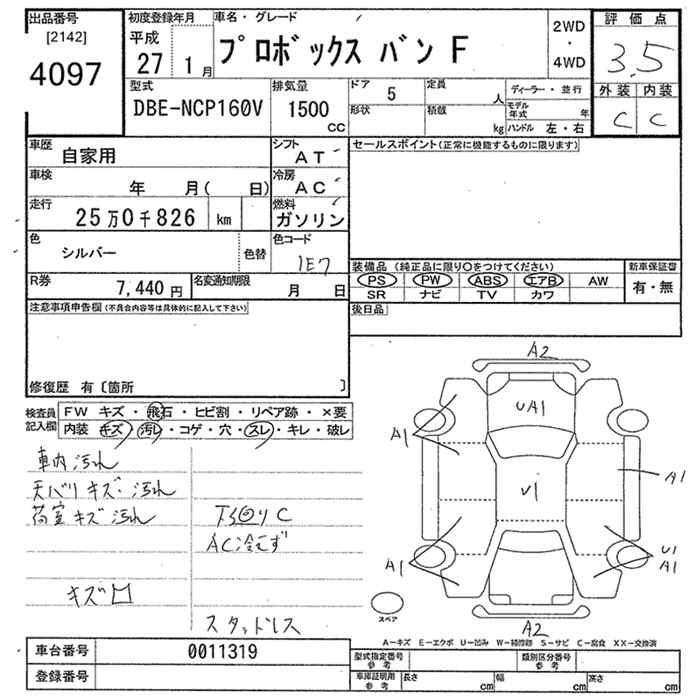 出品番号
[2142]
4097
初度登録年月
平成
27 1月
車名・グレード
プロボックス バン F
2WD
・
4WD
評価点
3.5
外装 内装
C C
型式
DBE-NCP160V
排気量
1500
CC
ドア 5
形状
定員 人
積載 kg
ディーラー・並行
モデル年式 年
ハンドル 左・右
車歴
自家用
シフト
AT
車検
年 月( 日)
冷房
AC
走行
25万0千826 km
燃料
ガソリン
色
シルバー
色替
色コード
1E7
R券
7,440円
名変通知期限
月 日
セールスポイント(正常に機能するものに限ります)
装備品(純正品に限り○をつけてください)
PS PW ABS エアB AW
SR ナビ TV カワ
新車保証書
有・無
後日品
注意事項申告欄(不具合内容等は具体的に記入して下さい)
修復歴 有〔箇所 〕
検査員記入欄
FW キズ・飛石・ヒビ割・リペア跡・×要
内装 キズ・汚レ・コゲ・穴・スレ・キレ・破レ
車内汚れ
天バリキズ・汚れ
荷室キズ汚れ
下回りC
AC冷えず
キズ凹
スタッドレス
A2
UA1
A1
U1
A1
A1
U1
A1
A2
スペア
A-キズ E-エクボ U-凹み W-補修跡 S-サビ C-腐食 XX-交換済
車台番号
0011319
登録番号
型式指定番号
参考
類別区分番号
参考
車庫証明用
参考
長さ cm
幅 cm
高さ cm